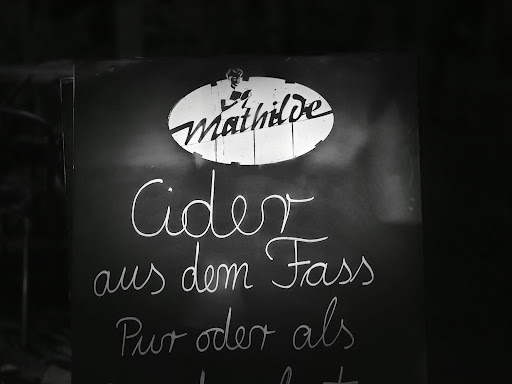 Mathilde
Cider
aus dem Fass
Pur oder als